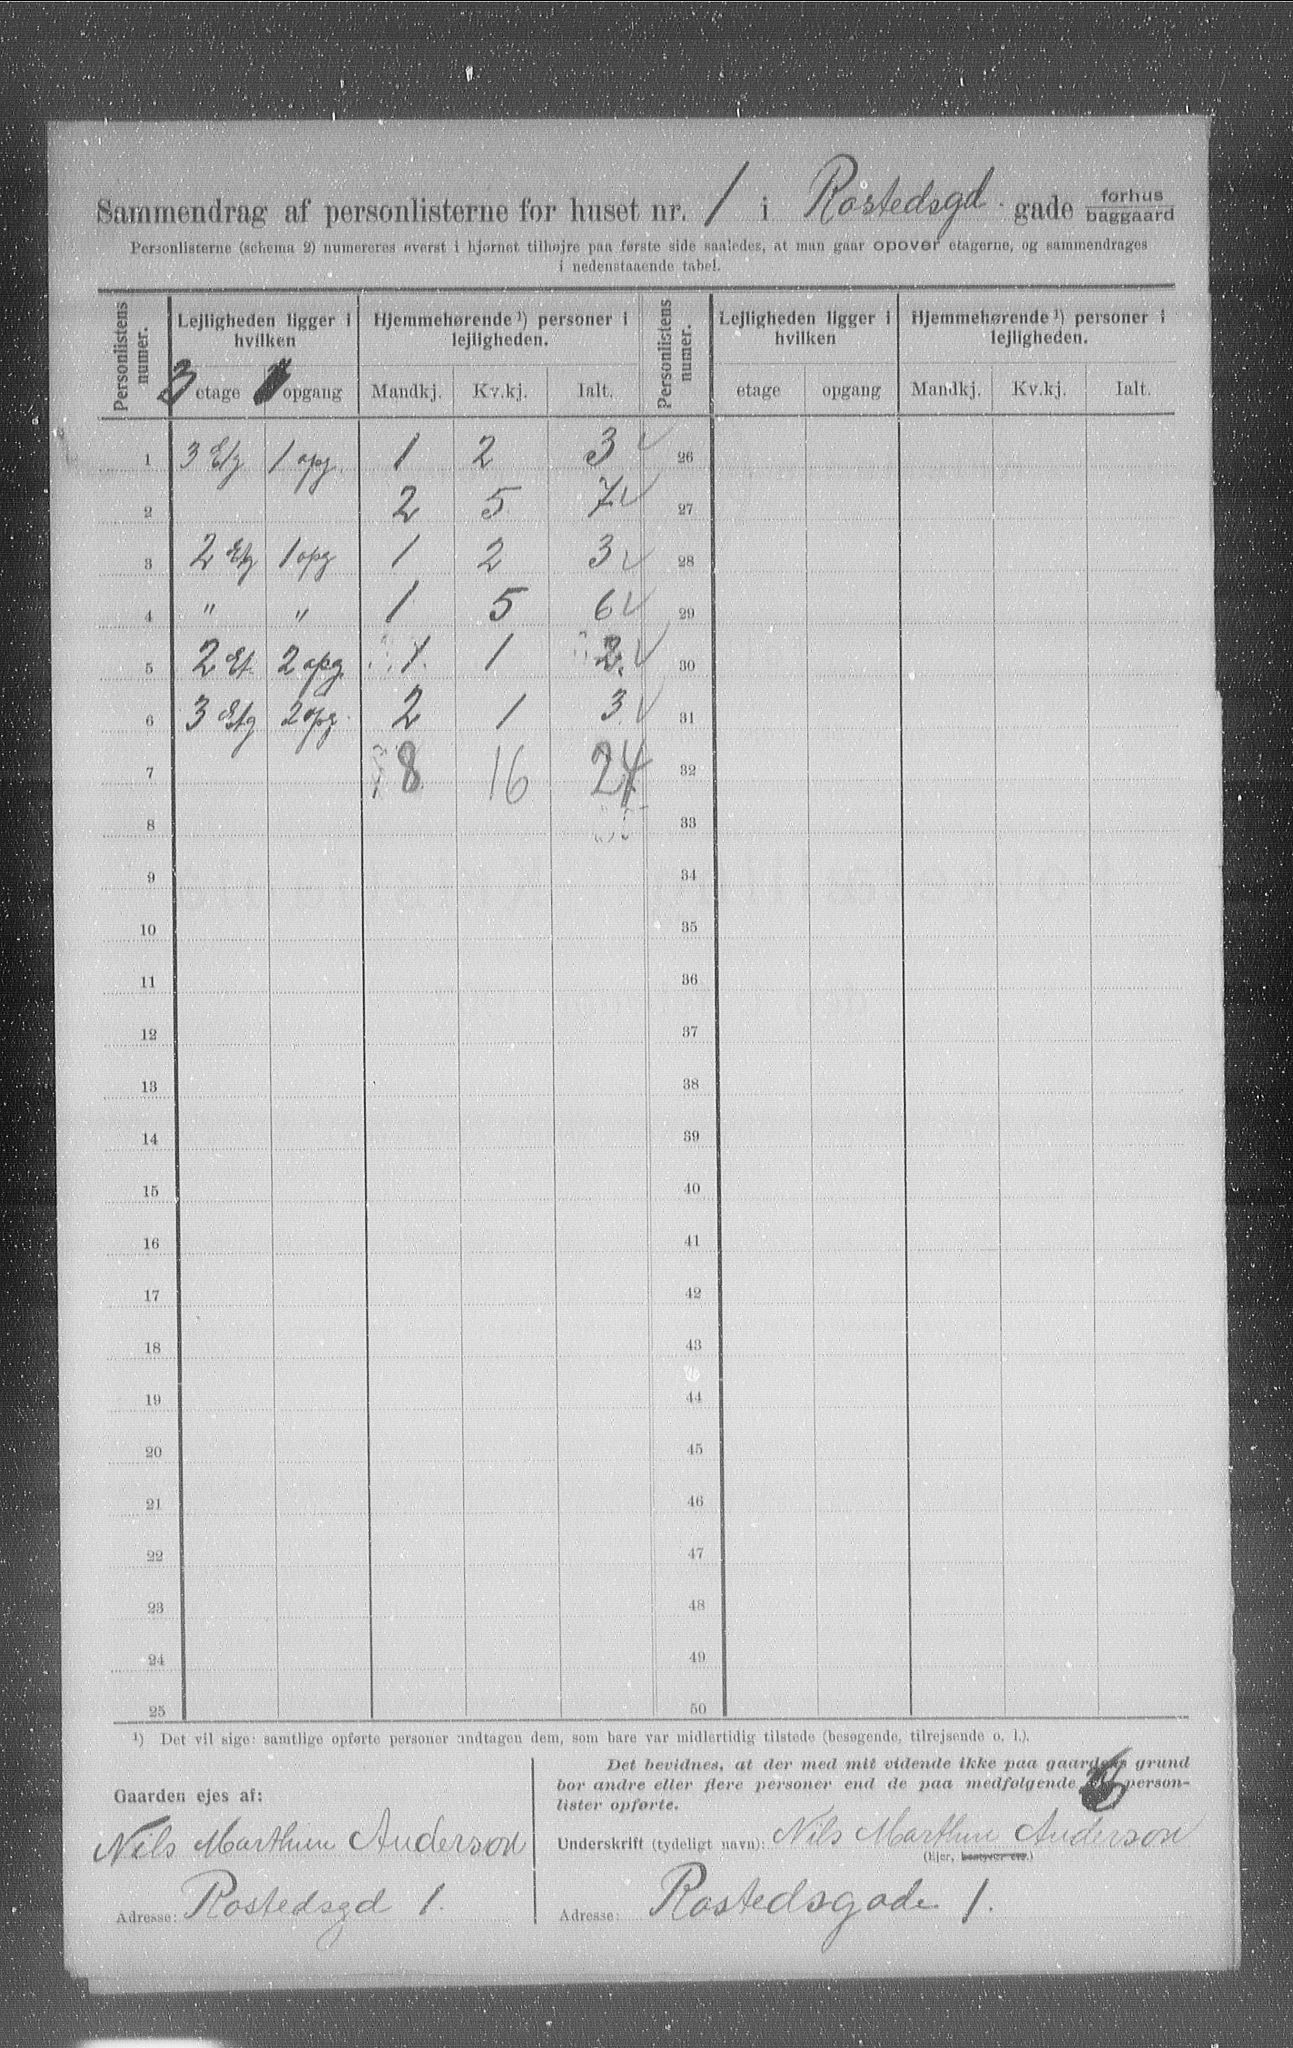 Sammendrag af personlisterne for huset nr. 1 i Rostedsgd. gade forhus baggaard
Personlisterne (schema 2) numereres øverst i hjørnet tilhøjre paa første side saaledes, at man gaar opover etagerne, og sammendrages
i nedenstaaende tabel.
Personlistens numer. Lejligheden ligger i hvilken Hjemmehørende ¹) personer i lejligheden. Personlistens numer. Lejligheden ligger i hvilken Hjemmehørende ¹) personer i lejligheden.
3 etage opgang Mandkj. Kv.kj. Ialt. etage opgang Mandkj. Kv.kj. Ialt.
1 3 Etg 1 opg. 1 2 3 ✓ 26
2 2 5 7 ✓ 27
3 2 Etg 1 opg 1 2 3 ✓ 28
4 " " 1 5 6 ✓ 29
5 2 Et. 2 opg. 1 1 2. ✓ 30
6 3 Etg 2 opg. 2 1 3 ✓ 31
7 8 16 24 32
8 33
9 34
10 35
11 36
12 37
13 38
14 39
15 40
16 41
17 42
18 43
19 44
20 45
21 46
22 47
23 48
24 49
25 50
¹) Det vil sige: samtlige opførte personer undtagen dem, som bare var midlertidig tilstede (besøgende, tilrejsende o. l.).
Gaarden ejes af:
Nils Marthin Anderson
Adresse: Rostedsgd 1.
Det bevidnes, at der med mit vidende ikke paa gaardens grund
bor andre eller flere personer end de paa medfølgende 6 person-
lister opførte.
Underskrift (tydeligt navn): Nils Marthin Anderson
(Ejer, bestyrer etc.)
Adresse: Rostedsgade 1.